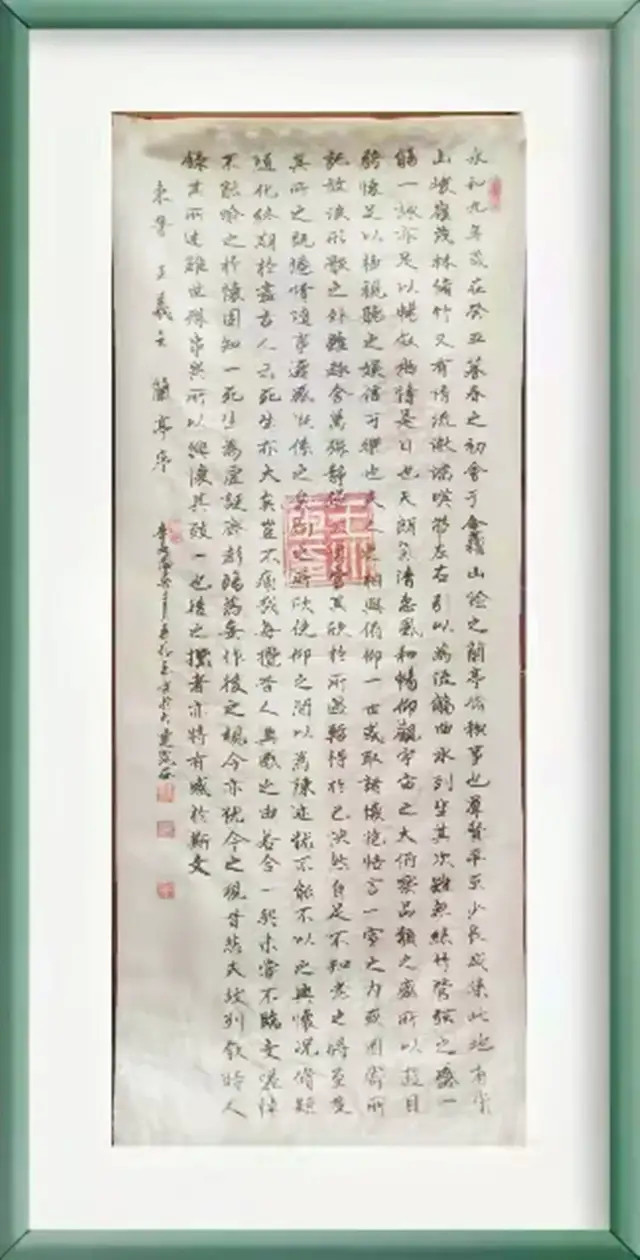 永和九年歲在癸丑暮春之初會于會稽山陰之蘭亭脩稧事也羣賢畢至少長咸集此地有崇
山峻嶺茂林脩竹又有清流激湍暎帶左右引以為流觴曲水列坐其次雖無絲竹管弦之盛一
觴一詠亦足以暢叙幽情是日也天朗氣清惠風和暢仰觀宇宙之大俯察品類之盛所以遊目
騁懷足以極視聽之娛信可樂也夫人之相與俯仰一世或取諸懷抱悟言一室之内或因寄所
託放浪形骸之外雖趣舍萬殊静躁不同當其欣於所遇暫得於己怏然自足不知老之將至及
其所之既惓情隨事遷感慨係之矣向之所欣俛仰之間以為陳迹猶不能不以之興懷况脩短
隨化終期於盡古人云死生亦大矣豈不痛哉每攬昔人興感之由若合一契未嘗不臨文嗟悼
不能喻之於懷固知一死生為虛誕齊彭殤為妄作後之視今亦猶今之視昔悲夫故列叙時人
錄其所述雖世殊事異所以興懷其致一也後之攬者亦將有感於斯文
東晉王羲之蘭亭序